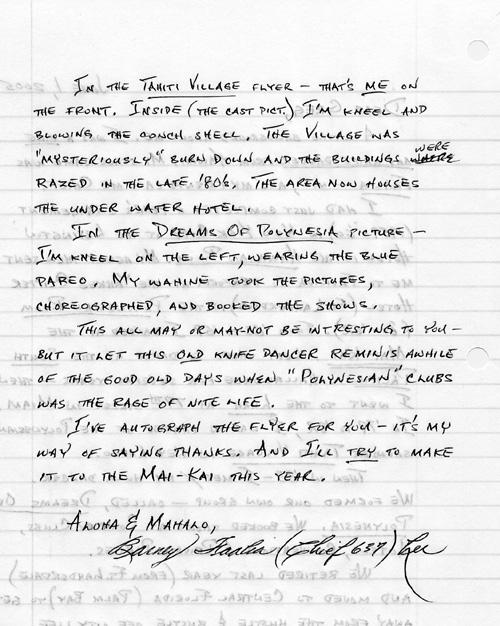 In the Tahiti Village flyer – that's me on
the front. Inside (the cast pict.) I'm kneel and
blowing the conch shell. The Village was
"mysteriously" burn down and the buildings were
razed in the late '80's. The area now houses
the under water hotel.
In the Dreams Of Polynesia picture –
I'm kneel on the left, wearing the blue
pareo. My wahine took the pictures,
choreographed, and booked the shows.
This all may or may-not be intresting to you –
but it let this old knife dancer reminis awhile
of the good old days when "Polynesian" clubs
was the rage of nite life.
I've autograph the flyer for you – it's my
way of saying thanks. And I'll try to make
it to the Mai-Kai this year.
Aloha & Mahalo,
(Chief 637) Lee